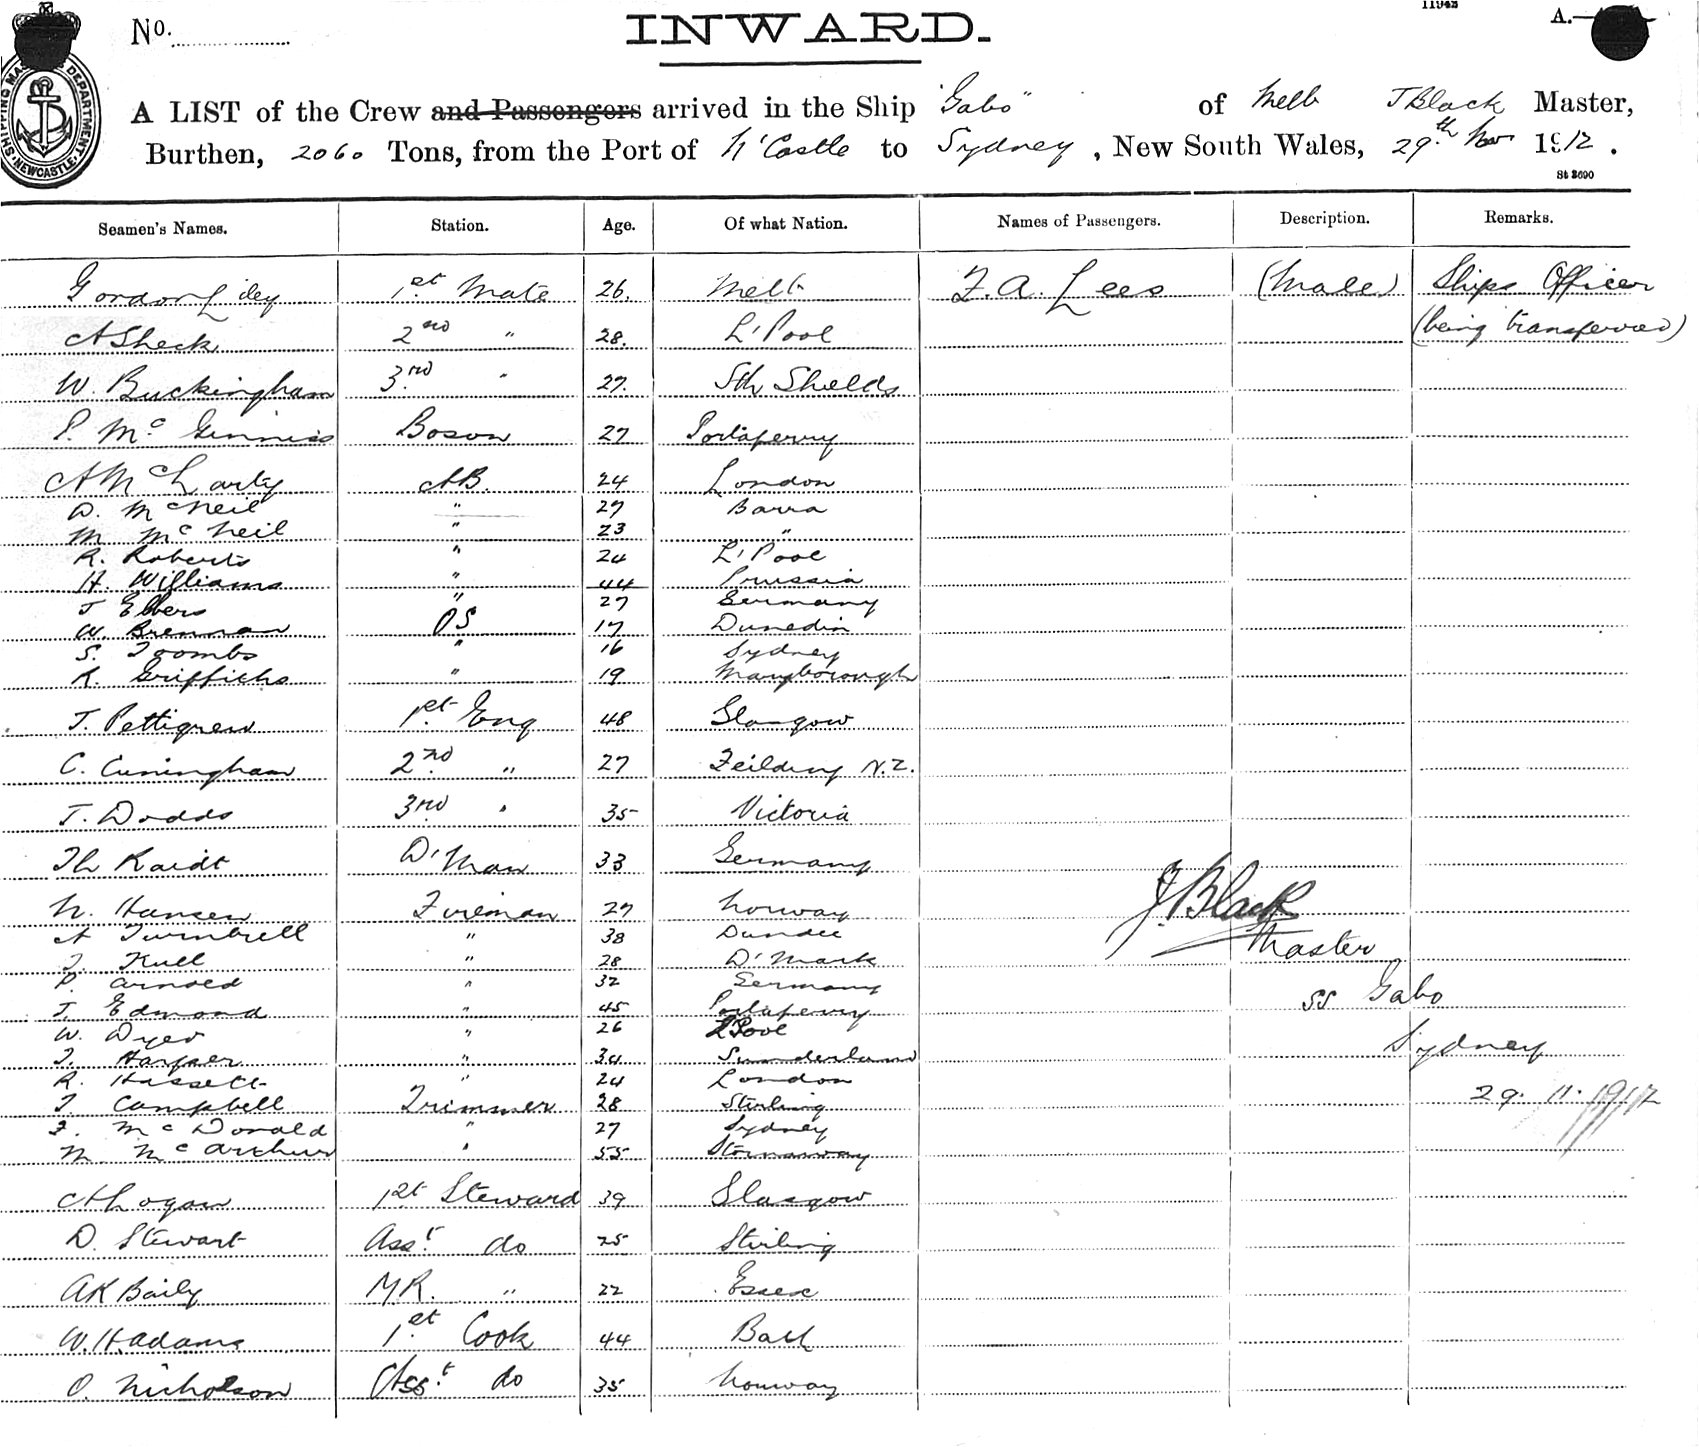 11943
No. INWARD. A.
SHIPPING MASTERS DEPARTMENT NEWCASTLE
A LIST of the Crew and Passengers arrived in the Ship "Gabo" of Melb J Black Master,
Burthen, 2060 Tons, from the Port of N'Castle to Sydney, New South Wales, 29th Nov 1912.
St 3690
Seamen's Names. Station. Age. Of what Nation. Names of Passengers. Description. Remarks.
Gordon Liley 1st Mate 26. Melb F. A. Lees (Male) Ships Officer
A Sheck 2nd " 28. L'Pool (being transferred)
W. Buckingham 3rd " 27. Sth Shields
P. Mc Ginniss Boson 27 Portaferry
A McLarty AB. 24 London
D. McNeil " 27 Barra
M McNeil " 23 "
R. Roberts " 24 L'Pool
H. Williams " 44 Prussia
J Elbers " 27 Germany
W. Brennan OS 17 Dunedin
S. Toombs " 16 Sydney
R. Griffiths " 19 Maryborough
J. Pettigrew 1st Eng 48 Glasgow
C. Cuningham 2nd " 27 Feilding N.Z.
T. Dodds 3rd " 35 Victoria
Th Raidt D'Man 33 Germany
N. Hansen Fireman 27 Norway
A Turnbull " 38 Dundee
J. Kull " 28 D'Mark
P. Arnold " 32 Germany
J. Edmond " 45 Portaferry
W. Dyer " 26 L'Pool
J. Harper " 34 Sunderland
R. Hassett " 24 London
J. Campbell Trimmer 28 Stirling
F. McDonald " 27 Sydney
M McArthur " 55 Stornaway
A Logan 1st Steward 39 Glasgow
D. Stewart Asst do 25 Stirling
AK Baily M.R. " 22 Essex
W. H. Adams 1st Cook 44 Bath
O. Nicholson Asst do 35 Norway
J. Black
Master
SS Gabo
Sydney
29.11.1912